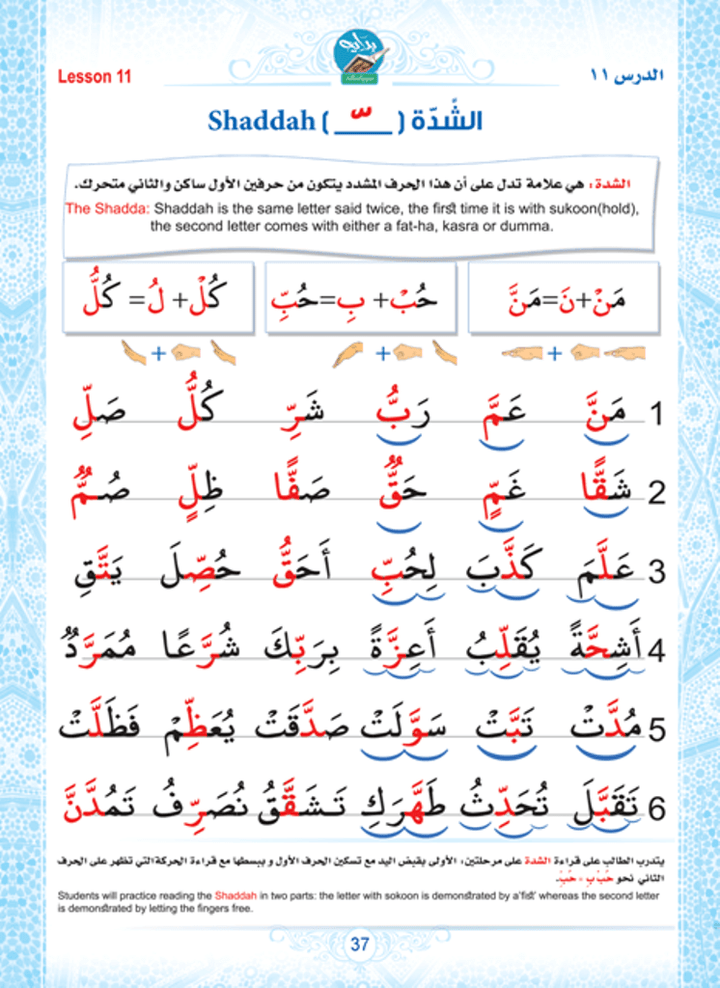 بداية
Lesson 11
الدرس ١١
Shaddah ( ــّـ ) الشَّدّة
الشدة : هي علامة تدل على أن هذا الحرف المشدد يتكون من حرفين الأول ساكن والثاني متحرك.
The Shadda: Shaddah is the same letter said twice, the first time it is with sukoon(hold),
the second letter comes with either a fat-ha, kasra or dumma.
مَنْ+نَ=مَنَّ
حُبْ+ بِ=حُبِّ
كُلْ+ لُ= كُلُّ
1 مَنَّ عَمَّ رَبُّ شَرِّ كُلُّ صَلِّ
2 شَقًّا غَمٍّ حَقٌّ صَفًّا ظِلٍّ صُمٌّ
3 عَلَّمَ كَذَّبَ لِحُبِّ أَحَقُّ حُصِّلَ يَتَّقِ
4 أَشِحَّةً يُقَلِّبُ أَعِزَّةً بِرَبِّكَ شُرَّعًا مُمَرَّدٌ
5 مُدَّتْ تَبَّتْ سَوَّلَتْ صَدَّقَتْ يُعَظِّمْ فَظَلَّتْ
6 تَقَبَّلَ تُحَدِّثُ طَهَّرَكِ تَشَقَّقُ نُصَرِّفُ تَمُدَّنَّ
يتدرب الطالب على قراءة الشدة على مرحلتين، الأولى بقبض اليد مع تسكين الحرف الأول و ببسطها مع قراءة الحركة التي تظهر على الحرف
الثاني نحو حُبْ بِ = حُبِّ.
Students will practice reading the Shaddah in two parts: the letter with sokoon is demonstrated by a'fist' whereas the second letter
is demonstrated by letting the fingers free.
37